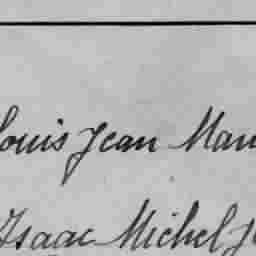 Louis Jean Mau
Isaac Michel J